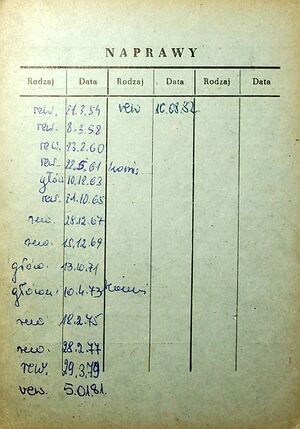 NAPRAWY
Rodzaj Data Rodzaj Data Rodzaj Data
rew. 21.3.54 rew 10.08.82
rew. 8.3.58
rew. 23.2.60
rew. 22.5.61
głów 10.12.63
rew. 21.10.65
rew. 28.12.67
rew. 15.12.69
głów. 13.10.71
główna 10.4.73
rew 18.2.75
rew. 28.2.77
rew. 29.3.79
rew. 5.01.81.